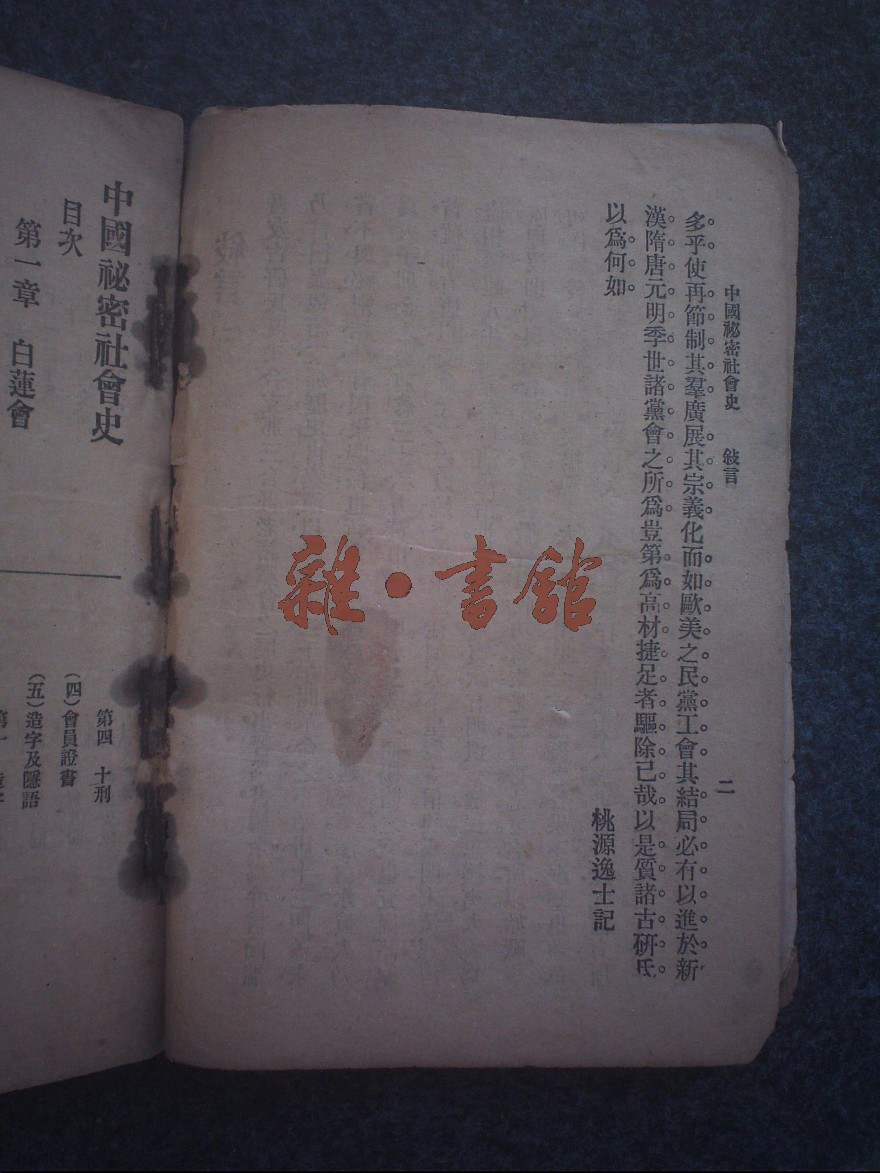 中國祕密社會史 敍言 二
多乎使再節制其羣廣展其宗義化而如歐美之民黨工會其結局必有以進於新
漢隋唐元明季世諸黨會之所爲豈第爲高材捷足者驅除已哉以是質諸古硏氏
以爲何如
桃源逸士記
中國祕密社會史
目次
第一章 白蓮會
第四 十刑
(四)會員證書
(五)造字及隱語
雜·書館